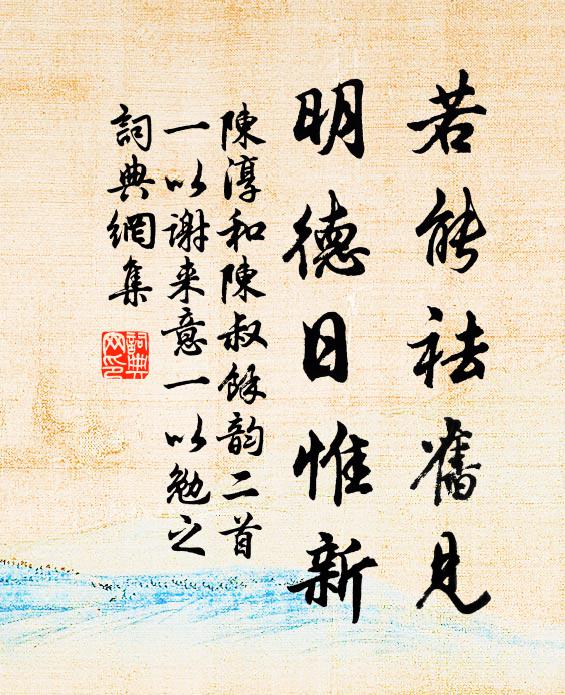 若能祛舊見
明德日惟新
陳淳和陳叔餘韵二首
一以謝来意一以勉之
詞典網集
詞典
网印